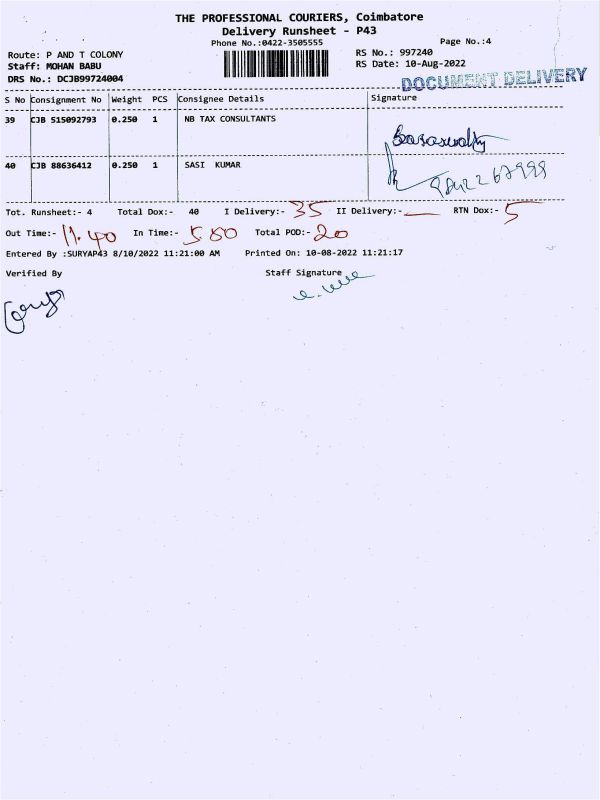 THE PROFESSIONAL COURIERS, Coimbatore
Delivery Runsheet - P43
Phone No.:0422-3505555
Page No.:4
Route: P AND T COLONY
RS No.: 997240
Staff: MOHAN BABU
RS Date: 10-Aug-2022
DRS No.: DCJB99724004
DOCUMENT DELIVERY
S No Consignment No Weight PCS Consignee Details Signature
39 CJB 515092793 0.250 1 NB TAX CONSULTANTS
40 CJB 88636412 0.250 1 SASI KUMAR
Tot. Runsheet:- 4 Total Dox:- 40 I Delivery:- 35 II Delivery:- — RTN Dox:- 5
Out Time:- 11.40 In Time:- 5.50 Total POD:- 20
Entered By :SURYAP43 8/10/2022 11:21:00 AM Printed On: 10-08-2022 11:21:17
Verified By Staff Signature